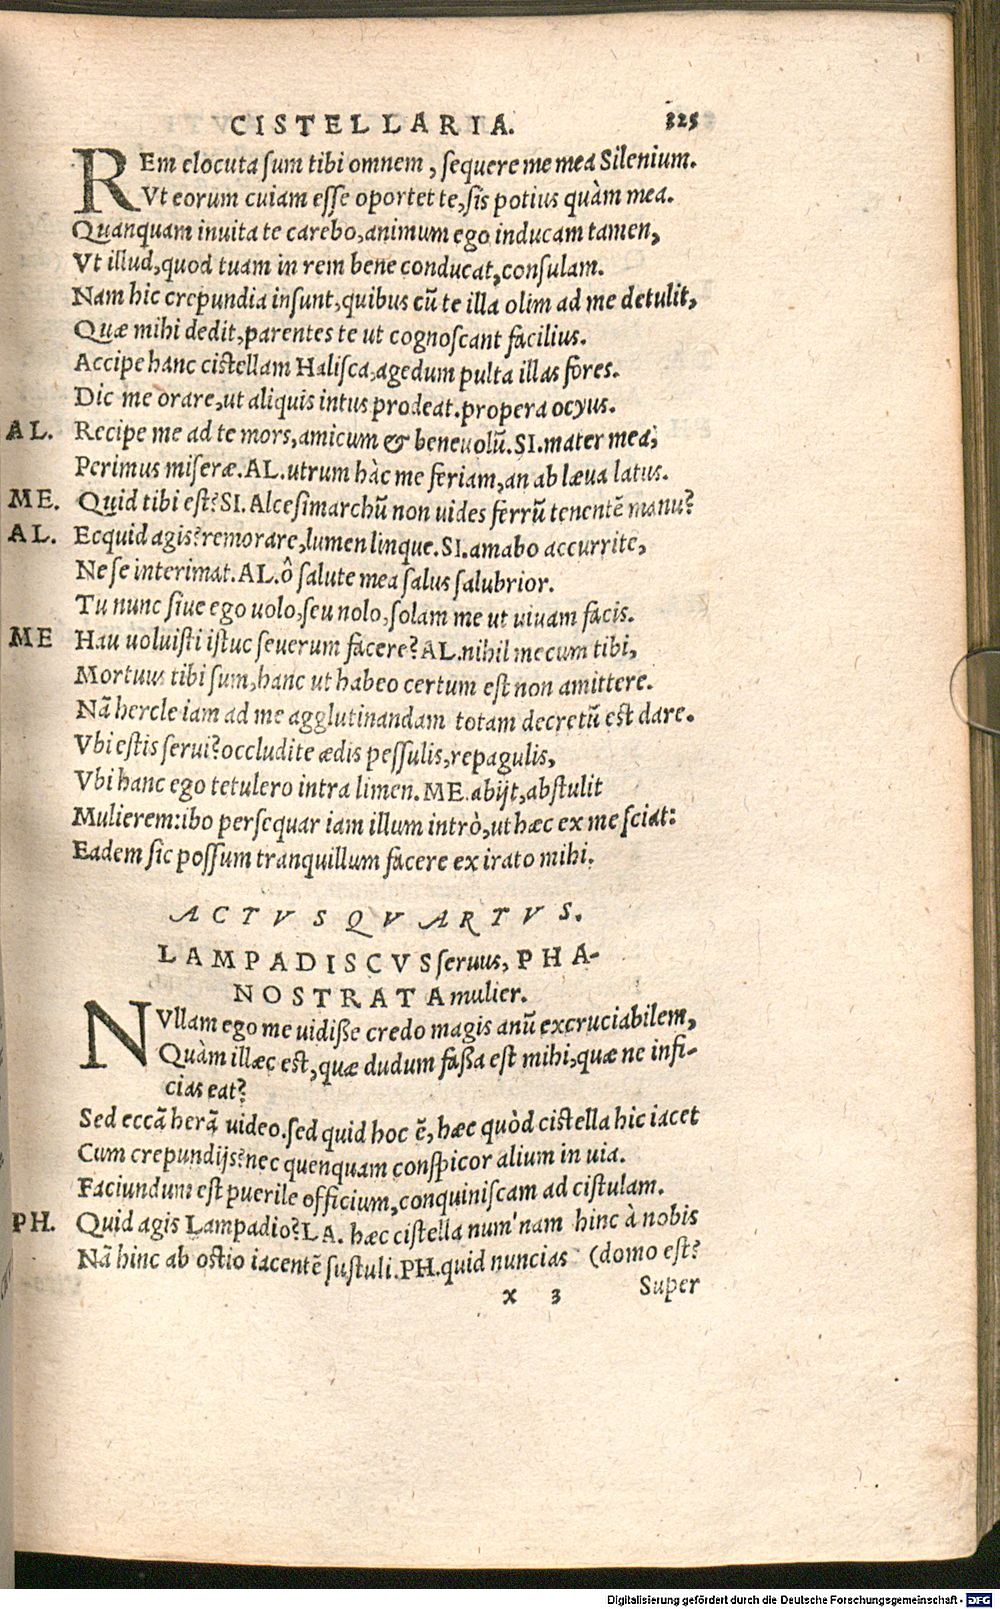 CISTELLARIA. 325
REm elocuta sum tibi omnem, sequere me mea Silenium.
Vt eorum cuiam esse oportet te, sis potius quàm mea.
Quanquam inuita te carebo, animum ego inducam tamen,
Vt illud, quod tuam in rem bene conducat, consulam.
Nam hic crepundia insunt, quibus cũ te illa olim ad me detulit,
Quæ mihi dedit, parentes te ut cognoscant facilius.
Accipe hanc cistellam Halisca, agedum pulta illas fores.
Dic me orare, ut aliquis intus prodeat. propera ocyus.
AL. Recipe me ad te mors, amicum & beneuolũ. SI. mater mea;
Perimus miseræ. AL. utrum hàc me feriam, an ab læua latus.
ME. Quid tibi est? SI. Alcesimarchũ non uides ferrũ tenentẽ manu?
AL. Ecquid agis? remorare, lumen linque. SI. amabo accurrite,
Ne se interimat. AL. ô salute mea salus salubrior.
Tu nunc siue ego uolo, seu nolo, solam me ut uiuam facis.
ME Hau uoluisti istuc seuerum facere? AL. nihil mecum tibi,
Mortuus tibi sum, hanc ut habeo certum est non amittere.
Nã hercle iam ad me agglutinandam totam decretũ est dare.
Vbi estis serui? occludite ædis pessulis, repagulis,
Vbi hanc ego tetulero intra limen. ME. abijt, abstulit
Mulierem: ibo persequar iam illum intrò, ut hæc ex me sciat:
Eadem sic possum tranquillum facere ex irato mihi.
ACTVS QVARTVS.
LAMPADISCVS seruus, PHA-
NOSTRATA mulier.
NVllam ego me uidisse credo magis anũ excruciabilem,
Quàm illæc est, quæ dudum fassa est mihi, quæ ne infi-
cias eat?
Sed eccã herã uideo. sed quid hoc ẽ, hæc quòd cistella hic iacet
Cum crepundijs? nec quenquam conspicor alium in uia.
Faciundum est puerile officium, conquiniscam ad cistulam.
PH. Quid agis Lampadio? LA. hæc cistella num'nam hinc à nobis
Nã hinc ab ostio iacentẽ sustuli. PH. quid nuncias (domo est?
x 3 Super
Digitalisierung gefördert durch die Deutsche Forschungsgemeinschaft - DFG